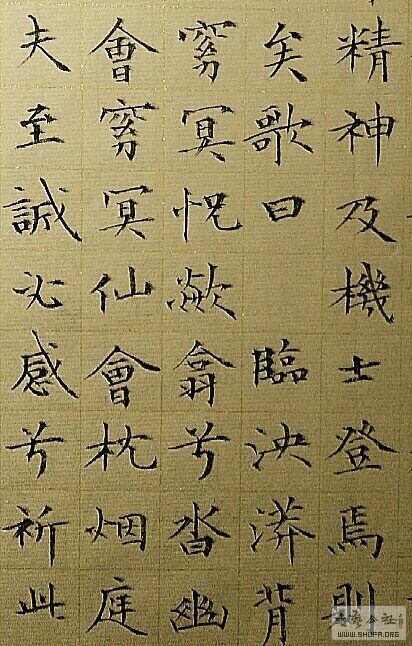 精神及機士登焉則
矣歌曰 臨泱漭背
窅冥怳欻翕兮沓幽
會窅冥仙會枕烟庭
夫至誠必感兮祈此
WWW.SHUFA.ORG